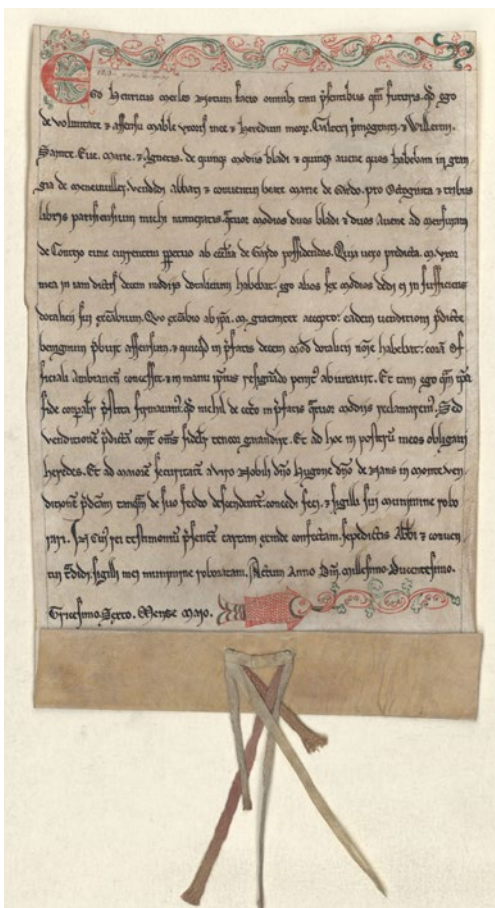 Ego Henricus Merles notum facio omnibȝ tam p̃sentibus qm̃ futuris. qđ ego
de voluntate ⁊ assensu mabile uxoris mee ⁊ heredum meoȝ. Galteri p̃mogeniti. ⁊ Willermi.
Sancte. Eue. marie. ⁊ Agnetis. de quinqȝ modiis bladi ⁊ quinqȝ avene quos habebam in gran
gia de meneuuiller. vendidi abbati ⁊ conventui beate marie de Gardo. pro Octoginta ⁊ tribus
libris parisiensium michi numeratis. q̃tuor modios duos bladi ⁊ duos Avene ad mensuram
de Conteyo tunc currentem ꝑpetuo ab ecc̃lia de Gardo possidendos. Quia vero predicta .m. uxor
mea in iam dictis decem modiis dotalicium habebat. ego alios sex modios dedi ei in sufficiens
dotalicii sui excãbium. Quo excãbio ab ip̃a .m. gratanter accepto: eidem venditioni p̃dicte
benignum p̃buit assensum. ⁊ quicqđ in p̃fatis decem mod̃ dotalicii noĩe habebat: corã Of
ficiali Ambianeñ concessit. ⁊ in manu ip̃ius resignãdo penit9 abiuravit. Et tam ego qm̃ ip̃a
fide corporalr̃ p̃stita firmavim9. qđ nichil de cet̃o in p̃fatis q̃tuor modiis reclamarem9. Sed
venditionẽ p̃dictã cont̃ om̃s fidelr̃ teneor garandire. Et ad hoc in posterũ meos obligavi
heredes. Et ad maiorẽ securitatẽ a viro nobili dñO Hugone dñO de Nans in monte ven
ditionẽ p̃dc̃am tanqm̃ de suo feodo descendentẽ. concedi feci. ⁊ sigilli sui munimine robo
rari. In cui9 rei testimoniũ p̃sentẽ cartam exinde confectam. sepedictis Abbi ⁊ conven
tui t̃didi. sigilli mei munimine roboratam. Actum Anno Dñi Millesimo. Ducentesimo.
Tricesimo. Sexto. Mense Mayo.